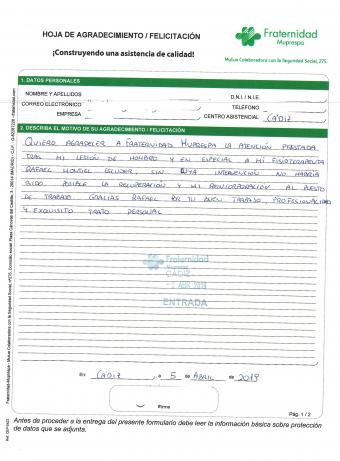 HOJA DE AGRADECIMIENTO / FELICITACIÓN
¡Construyendo una asistencia de calidad!
Fraternidad
Muprespa
Mutua Colaboradora con la Seguridad Social, 275
1. DATOS PERSONALES
NOMBRE Y APELLIDOS
D.N.I. / N.I.E.
CORREO ELECTRÓNICO
TELÉFONO
EMPRESA
CENTRO ASISTENCIAL CÁDIZ
2. DESCRIBA EL MOTIVO DE SU AGRADECIMIENTO / FELICITACIÓN
QUIERO AGRADECER A FRATERNIDAD MUPRESPA LA ATENCIÓN PRESTADA
TRAS MI LESIÓN DE HOMBRO Y EN ESPECIAL A MI FISIOTERAPEUTA
RAFAEL MONTIEL ESCUDER, SIN CUYA INTERVENCIÓN NO HABRÍA
SIDO POSIBLE LA RECUPERACIÓN Y MI REINCORPORACIÓN AL PUESTO
DE TRABAJO. GRACIAS RAFAEL POR TU BUEN TRABAJO, PROFESIONALIDAD
Y EXQUISITO TRATO PERSONAL
Fraternidad
Muprespa
CÁDIZ
ABR 2019
ENTRADA
En CÁDIZ, a 5 de ABRIL de 2019
Firma
Pág. 1 / 2
Antes de proceder a la entrega del presente formulario debe leer la información básica sobre protección
de datos que se adjunta.